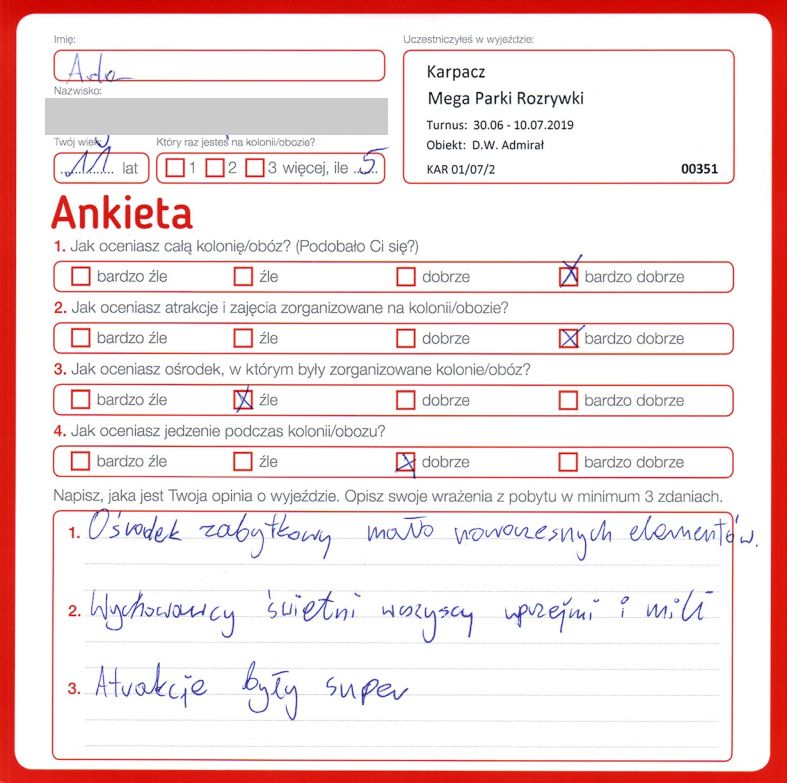 Imię:
Uczestniczyłeś w wyjeździe:
Ada
Karpacz
Nazwisko:
Mega Parki Rozrywki
Turnus: 30.06 - 10.07.2019
Twój wiek
Który raz jesteś na kolonii/obozie?
Obiekt: D.W. Admirał
11 lat
1 2 3 więcej, ile 5
KAR 01/07/2 00351
Ankieta
1. Jak oceniasz całą kolonię/obóz? (Podobało Ci się?)
bardzo źle źle dobrze bardzo dobrze
2. Jak oceniasz atrakcje i zajęcia zorganizowane na kolonii/obozie?
bardzo źle źle dobrze bardzo dobrze
3. Jak oceniasz ośrodek, w którym były zorganizowane kolonie/obóz?
bardzo źle źle dobrze bardzo dobrze
4. Jak oceniasz jedzenie podczas kolonii/obozu?
bardzo źle źle dobrze bardzo dobrze
Napisz, jaka jest Twoja opinia o wyjeździe. Opisz swoje wrażenia z pobytu w minimum 3 zdaniach.
1. Ośrodek zabytkowy mało nowoczesnych elementów.
2. Wychowawcy świetni wszyscy uprzejmi i mili
3. Atrakcje były super